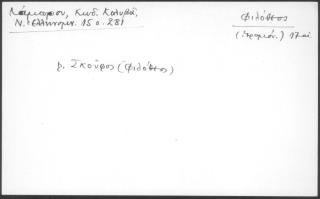 Λάμπρου, Κωδ. Καλυβ.,
Ν. Ελληνομν. 15 σ. 281
Φιλόθεος
(ἱερομόν.) 17 αἰ.
β. Σκοῦφος (Φιλόθεος)